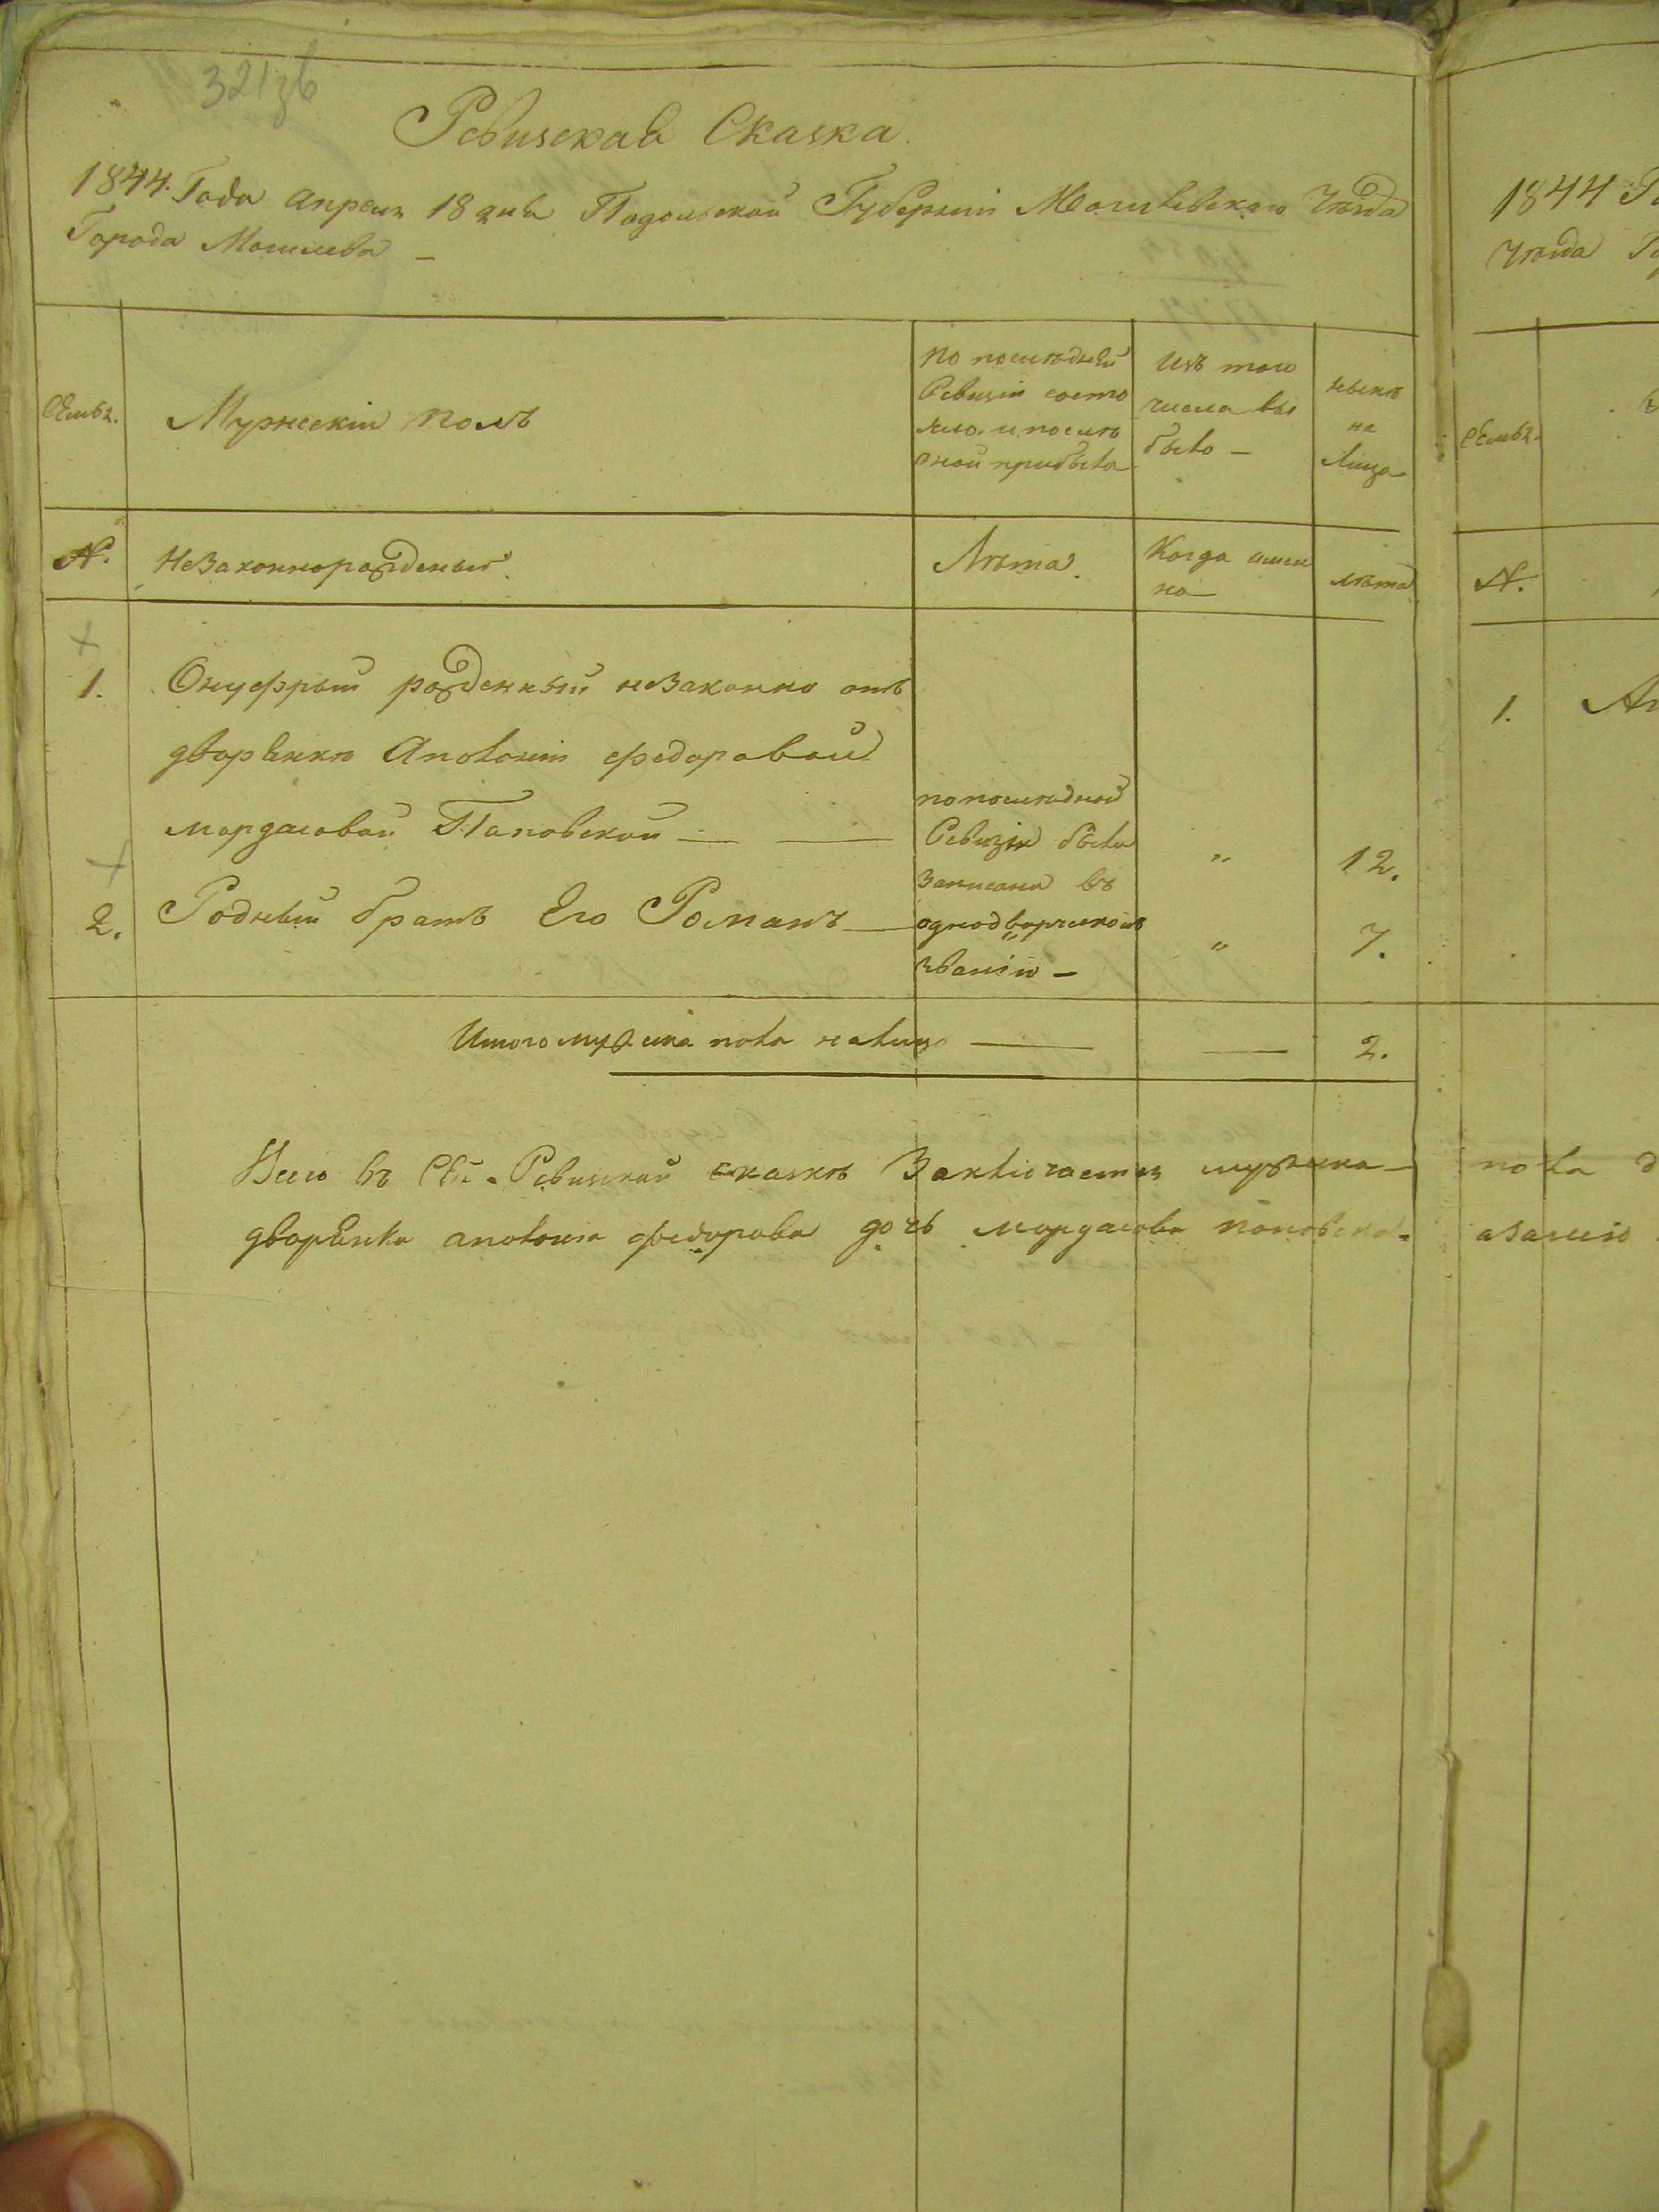 321зв
Ревизская Сказка.
1844. Года Апреля 18 дня Подольской Губернии Могилевскаго Уезда
Города Могилева —
Семья.
Мужескій полъ
По последней
Ревизіи состо
яло. и после
оной прибыло
Изъ того
числа вы
было —
ныне
на
лицо
№.
Незаконнорожденый.
Лѣта.
Когда имен
но
лѣта
1.
Онуфрый рожденный незаконно отъ
дворянки Аполоніи федоровой
мордасовой Поповской —
по последней
Ревизіи были
Записани въ
однодворческомъ
званіи —
"
12.
2.
Родный братъ Его Романъ
"
7.
Итого мужеска пола налицо
2.
Всего въ Сей Ревизской сказкѣ Заключается мужеска
дворянка аполонія федорова дочь мордасова поповска
1844
Уезда
Семья.
№.
1.
пола